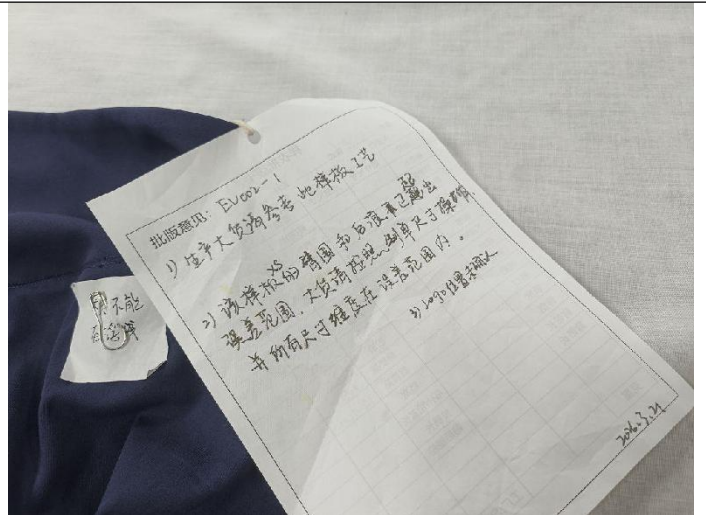 批版意见: EV002-1
1) 生产大货请参考此样板工艺
2) 该样板XS的臀围和后浪已超出
误差范围,大货请按照制单尺寸操作
并所有尺寸维度在误差范围内。
3) Logo位置未确认
不能
2026.3.21